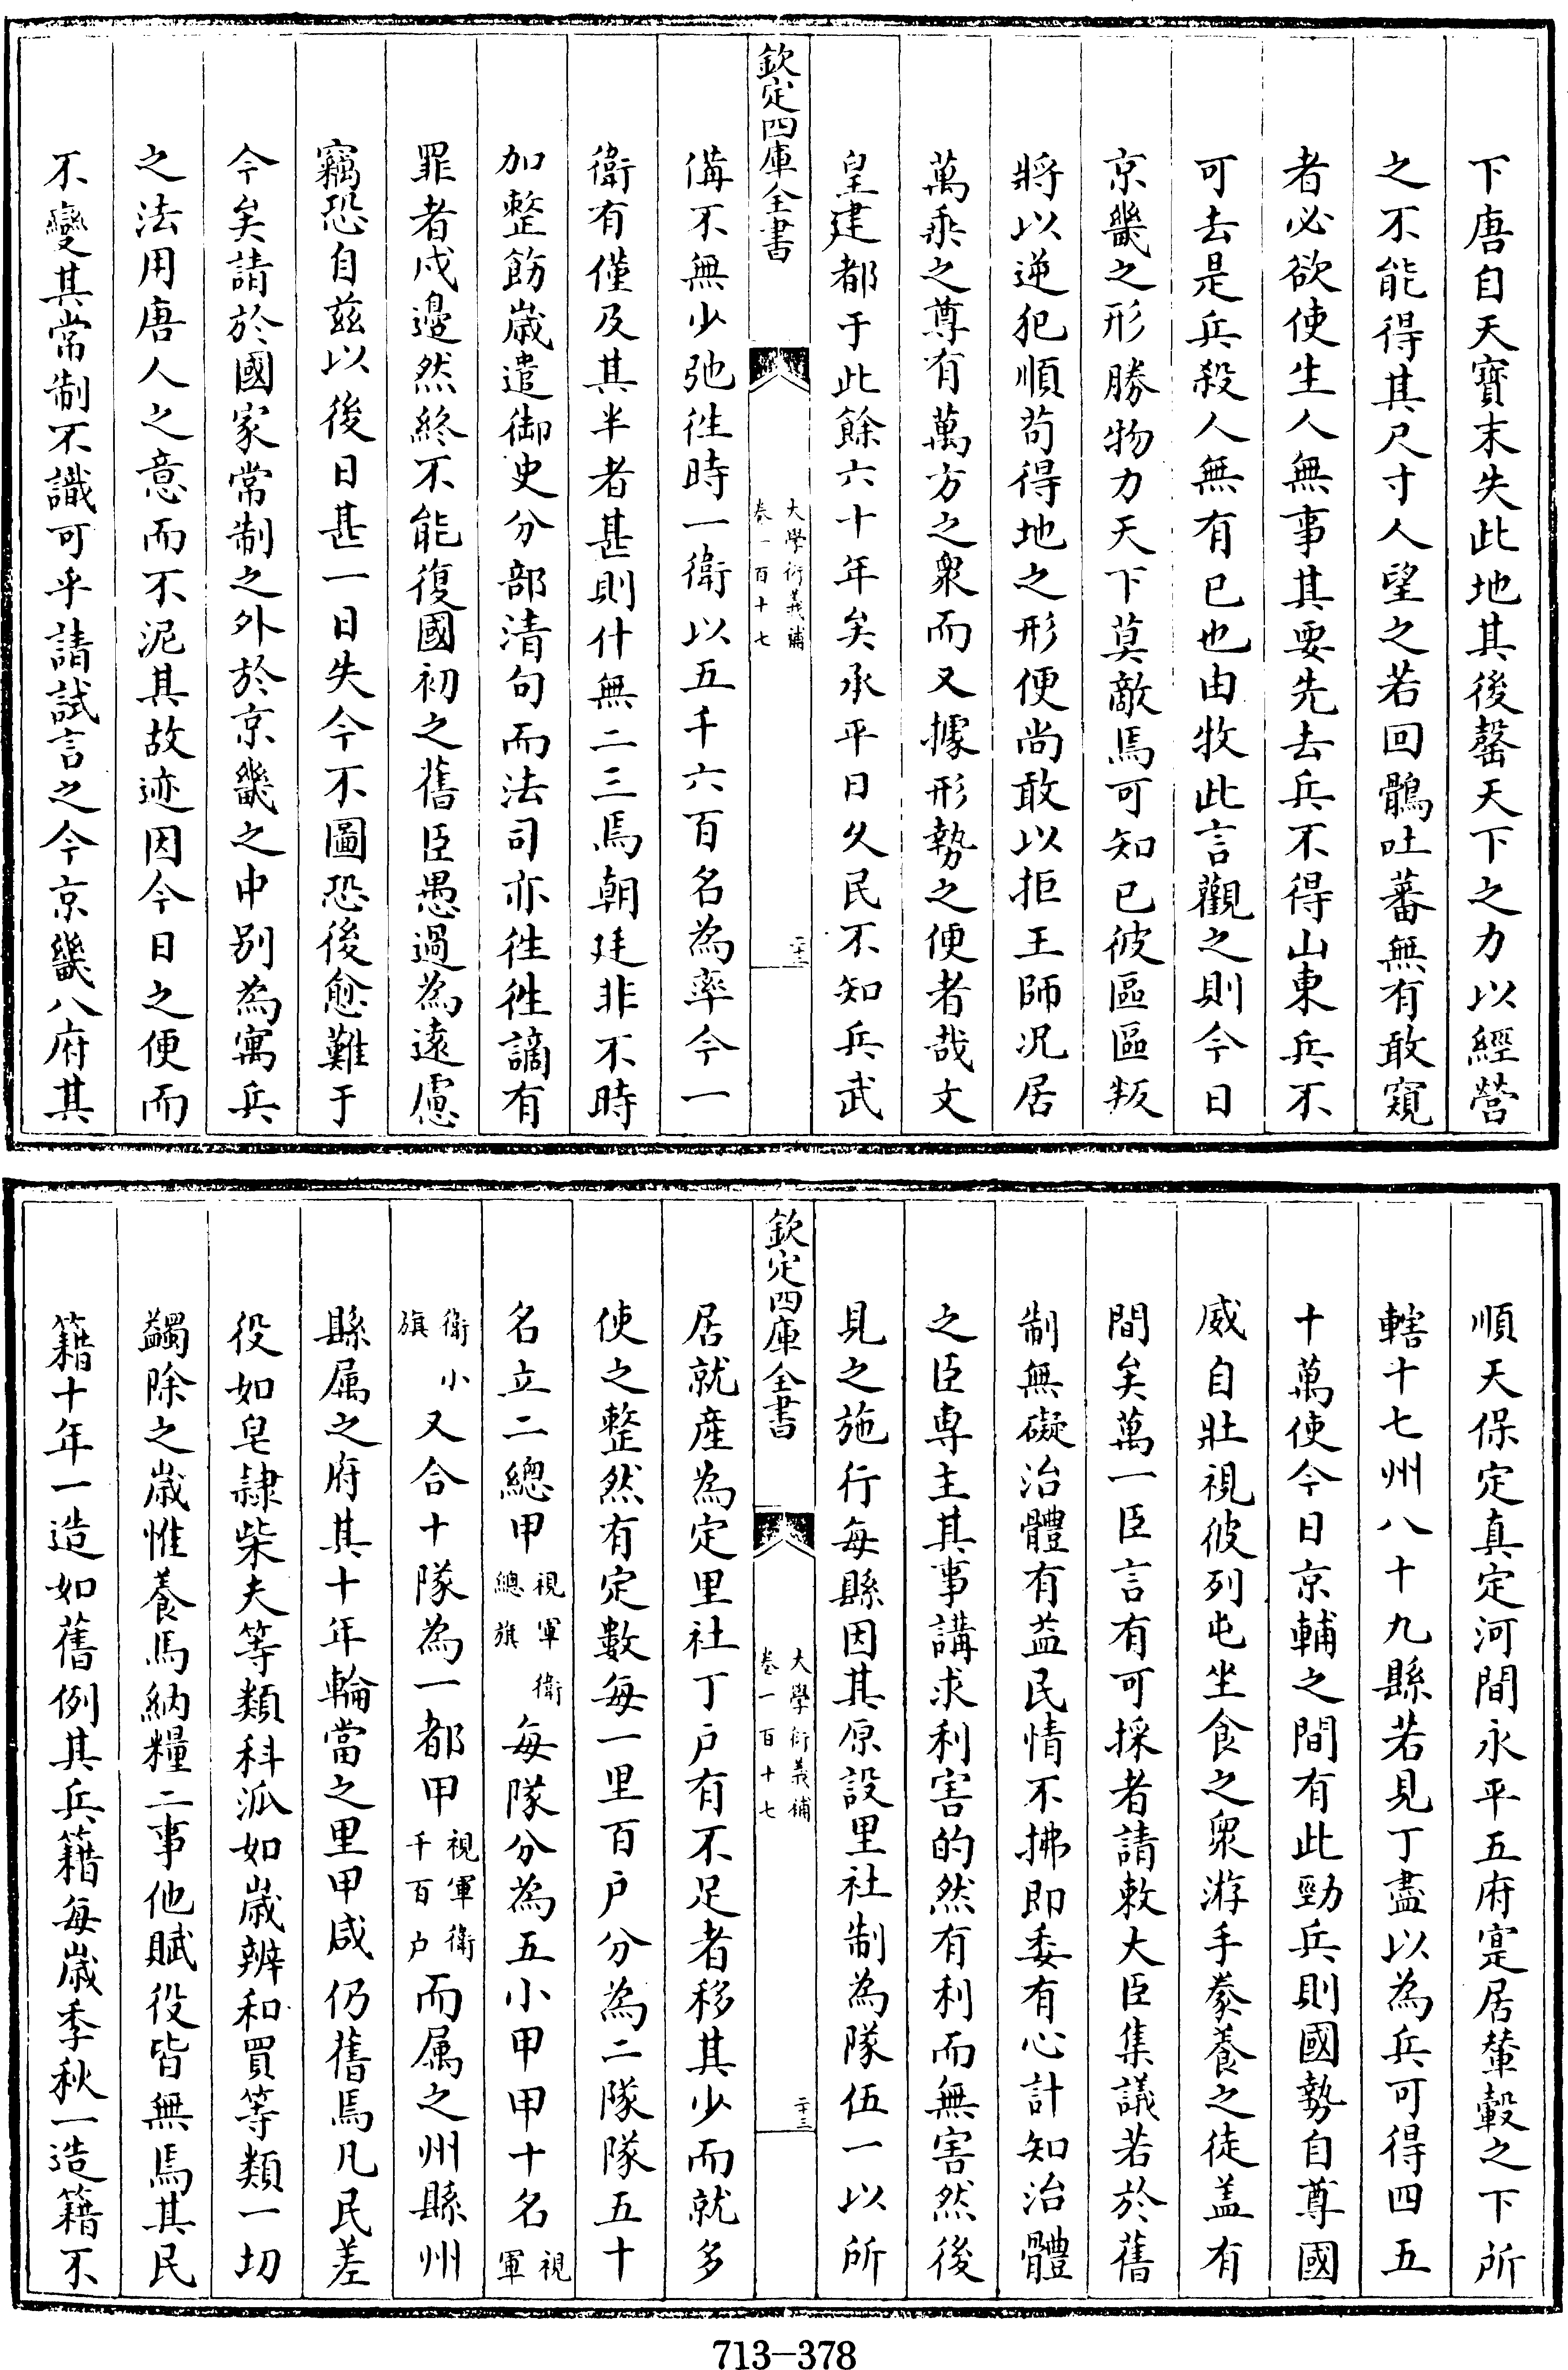 下唐自天寶末失此地其後罄天下之力以經營
之不能得其尺寸人望之若回鶻吐蕃無有敢窺
者必欲使生人無事其要先去兵不得山東兵不
可去是兵殺人無有已也由牧此言觀之則今日
京畿之形勝物力天下莫敵焉可知已彼區區叛
將以逆犯順苟得地之形便尚敢以拒王師况居
萬乘之尊有萬方之衆而又據形勢之便者哉文
皇建都于此餘六十年矣承平日久民不知兵武
欽定四庫全書
大學衍義補
卷一百十七
二十二
備不無少弛徃時一衛以五千六百名為率今一
衛有僅及其半者甚則什無二三焉朝廷非不時
加整飭嵗遣御史分部清句而法司亦徃徃謫有
罪者戍邊然終不能復國初之舊臣愚過為遠慮
竊恐自兹以後日甚一日失今不圖恐後愈難于
今矣請於國家常制之外於京畿之中别為寓兵
之法用唐人之意而不泥其故迹因今日之便而
不變其常制不識可乎請試言之今京畿八府其
順天保定真定河間永平五府寔居輦轂之下所
轄十七州八十九縣若見丁盡以為兵可得四五
十萬使今日京輔之間有此勁兵則國勢自尊國
威自壯視彼列屯坐食之衆游手豢養之徒盖有
間矣萬一臣言有可採者請敕大臣集議若於舊
制無礙治體有益民情不拂即委有心計知治體
之臣専主其事講求利害的然有利而無害然後
見之施行每縣因其原設里社制為隊伍一以所
欽定四庫全書
大學衍義補
卷一百十七
二十三
居就産為定里社丁户有不足者移其少而就多
使之整然有定數每一里百户分為二隊隊五十
名立二總甲視軍衛總旗每隊分為五小甲甲十名視軍
衛小旗又合十隊為一都甲視軍衛千百户而属之州縣州
縣属之府其十年輪當之里甲咸仍舊焉凡民差
役如皂隸柴夫等類科泒如嵗辨和買等類一切
蠲除之嵗惟養馬納糧二事他賦役皆無焉其民
籍十年一造如舊例其兵籍每嵗季秋一造籍不
713-378